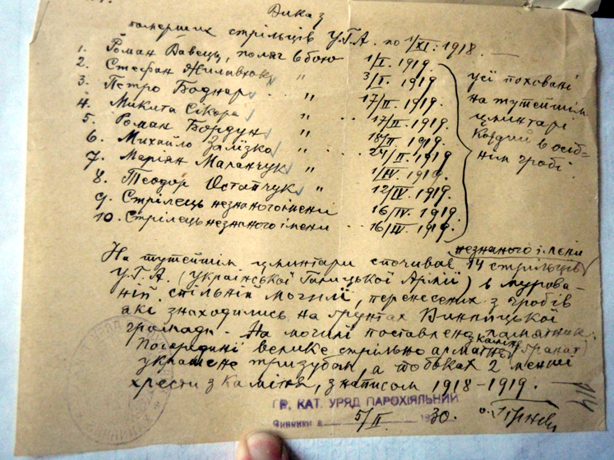 Виказ
померших стрільців У.Г.А. по 1/XI. 1918. —
1. Роман Давець, поляг в бою 1/I. 1919.
2. Стефан " 3/I. 1919.
3. Петро Боднар " 17/I. 1919.
4. Микита Сікора " 17/II. 1919.
5. Роман Бордун " 18/II. 1919.
6. Михайло Залізко " 24/II. 1919.
7. Маріян Маланчук " 1/IV. 1919.
8. Теодор Остапчук " 12/IV. 1919.
9. Стрілець незнаного імени 16/IV. 1919.
10. Стрілець незнаного імени 16/III. 1919.
усі поховані
на тутейшім
цминтарі
Кождий в осіб-
нім гробі.
незнаного імени
На тутейшім цминтари спочиває 14 стрільців
У.Г.А. (Української Галицької Армії) в мурова-
ній спільній могилі, перенесених з гробів
які знаходились на ґрунтах Винницької
громади. — На могилі поставлено памятник
з каміня
Посередині велике стрільно арматне
украшене тризубом, а по боках 2 менші
хрести з каміня, з написом 1918–1919. —
ГР. КАТ. УРЯД ПАРОХІЯЛЬНИЙ
Винники 5/II 1930.